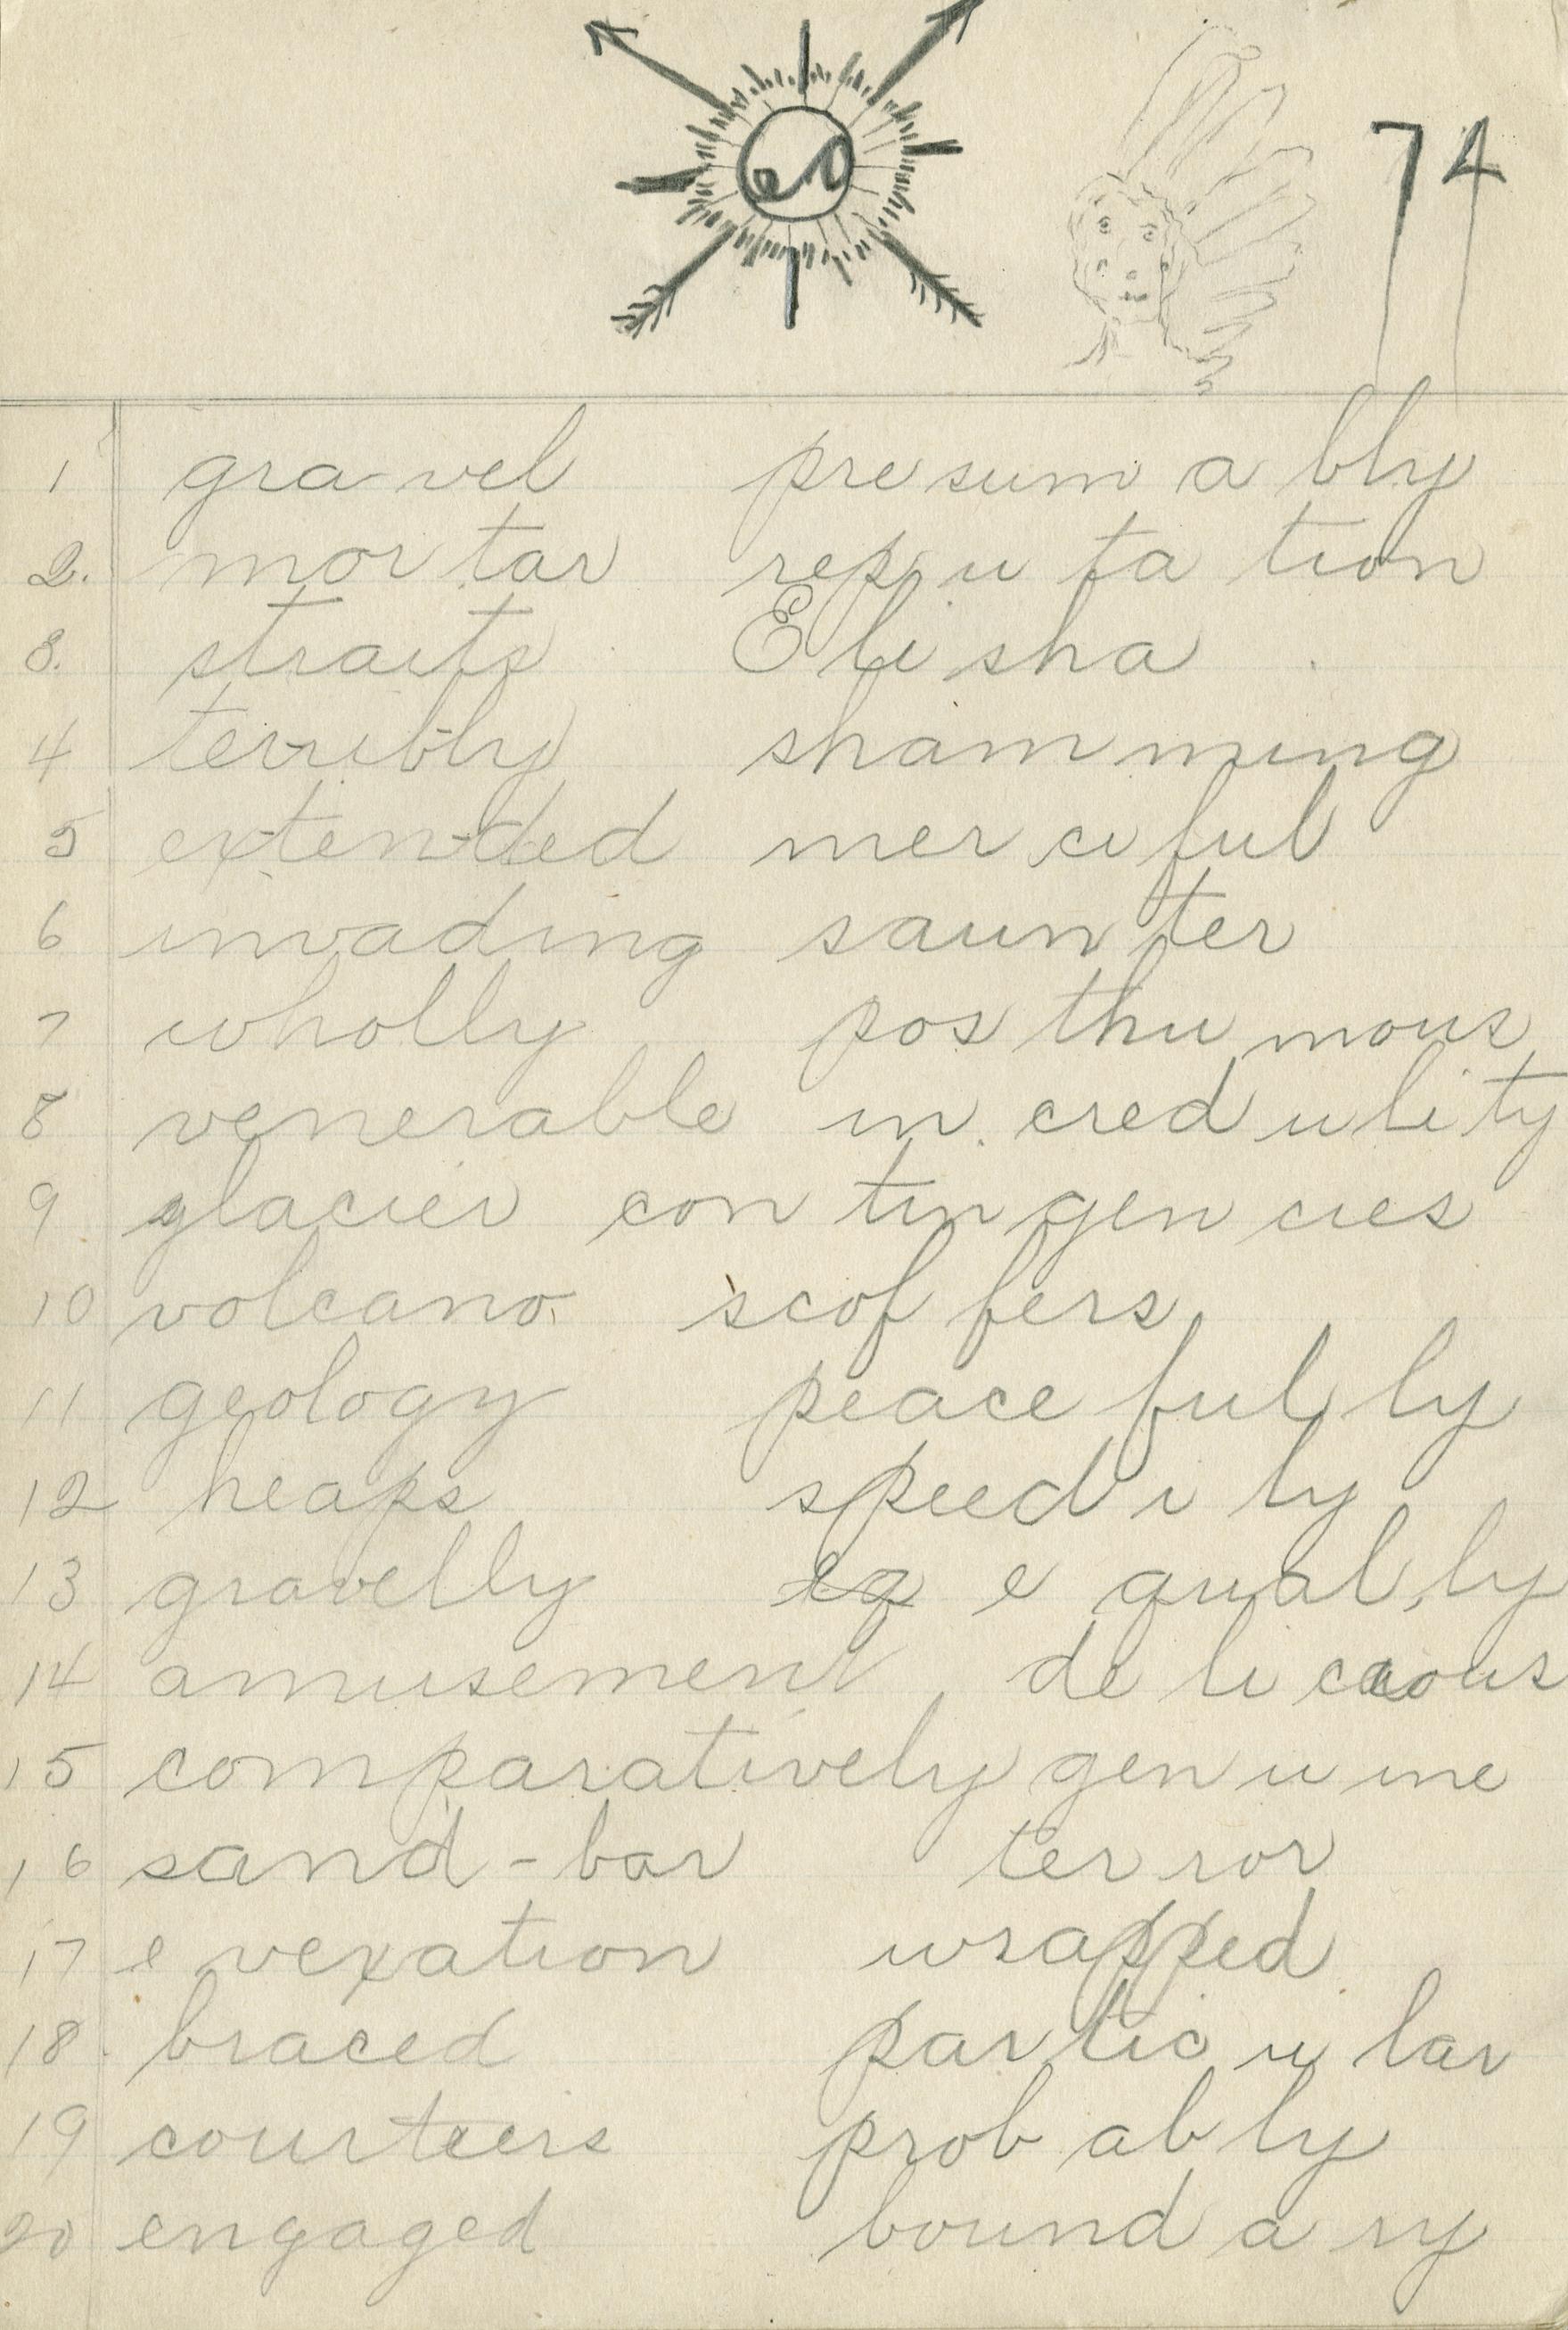 74
1 gra-vel presum a bly
2. mor tar rep u ta tion
3. straits E li sha
4 ter-ri-bly sham ming
5 ex-ten-ded mer ci ful
6 invading saun ter
7 wholly pos thu mous
8 venerable in cred u li ty
9 glacier con tin gen cies
10 volcano scof fers
11 geology peace ful ly
12 heaps speed i ly
13 gravelly eq e qual ly
14 amusement de li cious
15 comparatively gen u ine
16 sand-bar ter ror
17 e vexation wrapped
18 braced par tic u lar
19 courteers prob ab ly
20 engaged bound a ry